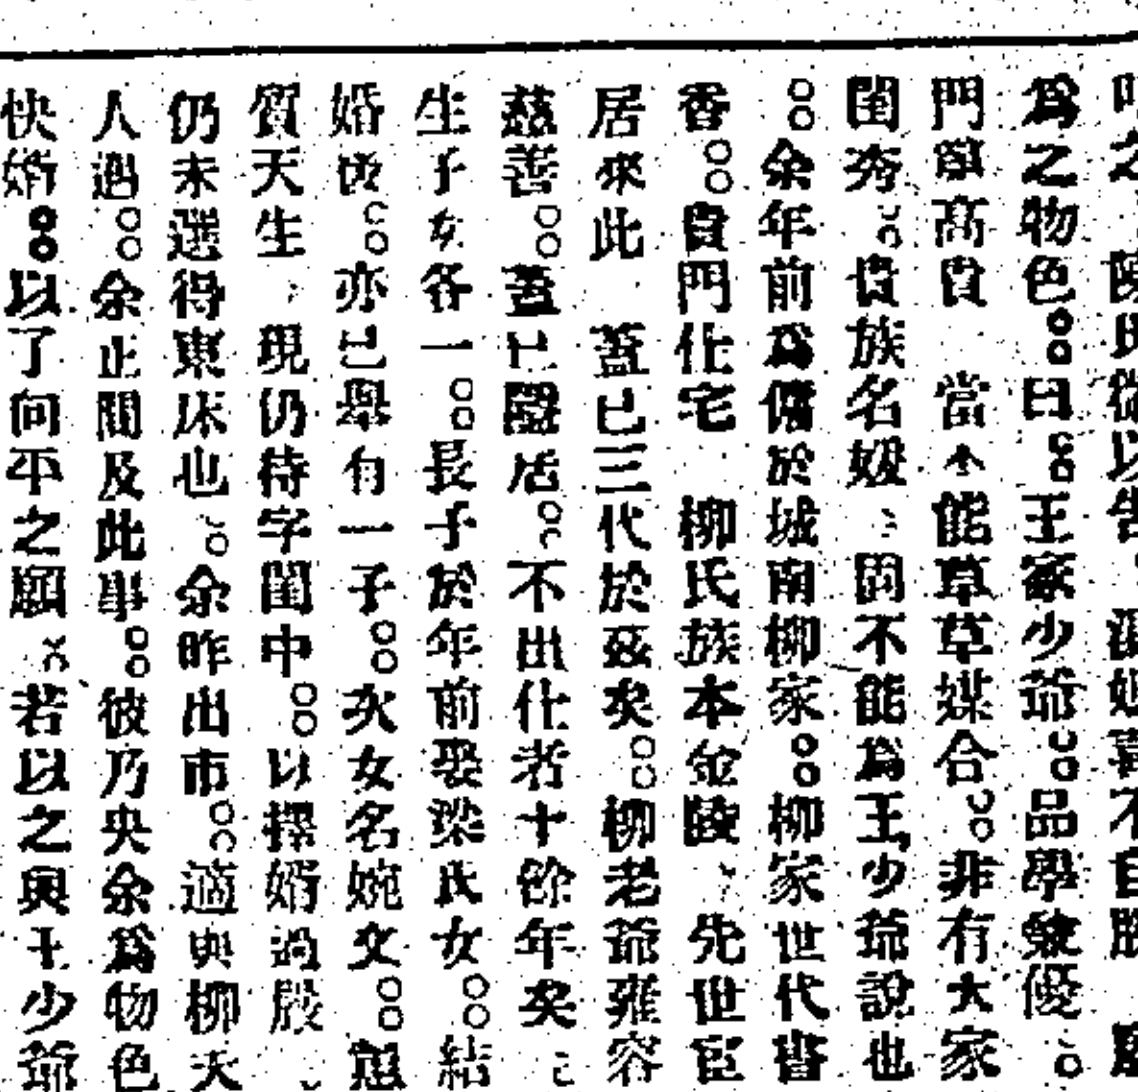 之。陳氏從以告。媒喜不自勝
爲之物色。曰。王家少爺。品學兼優。
門第高貴 當不能草草媒合。非有大家
閨秀。貴族名媛 固不能爲王少爺說也
。余年前爲傭於城南柳家。柳家世代書
香。貴門仕宅 柳氏族本金陵 先世宦
居來此 蓋已三代於茲矣。柳老爺雍容
慈善。蓋已隱居。不出仕者十餘年矣
生子女各一。長子於年前娶梁氏女。結
婚後。亦已舉有一子。次女名婉文。
質天生 現仍待字閨中。以擇婿過嚴
仍未選得東床也。余昨出市。適與柳夫
人遇。余正問及此事。彼乃央余爲物色
快婿。以了向平之願。若以之與王少爺